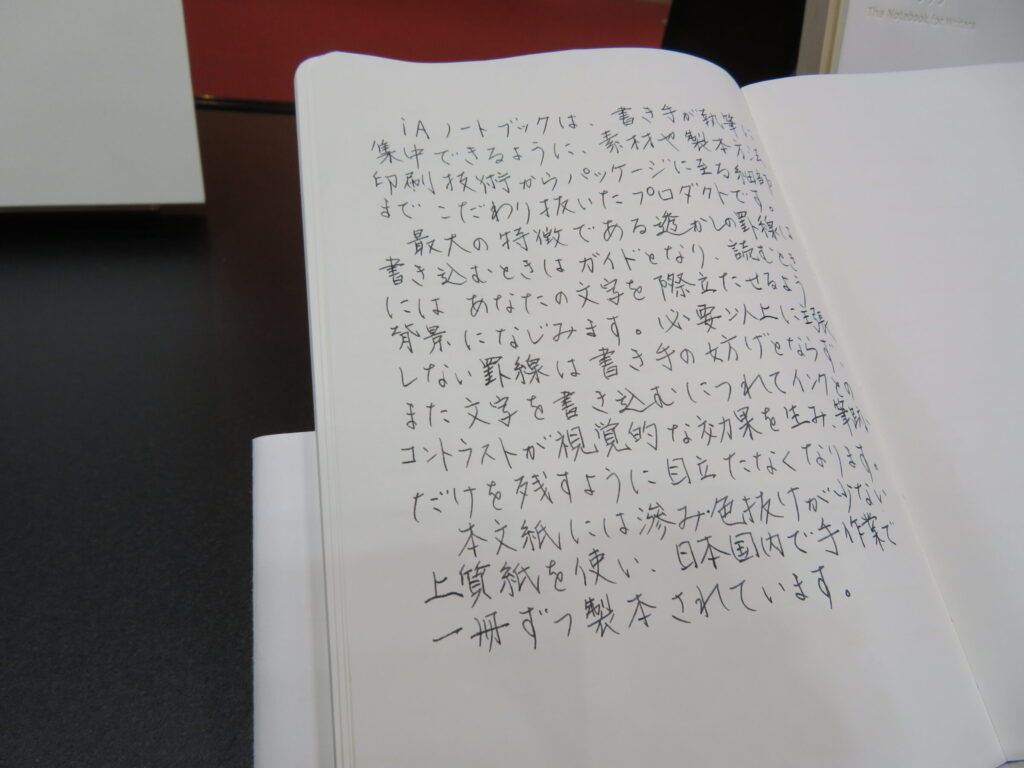 The Notebook for Writers
iAノートブックは、書き手が執筆に
集中できるように、素材や製本方法
印刷技術からパッケージに至る細部
までこだわり抜いたプロダクトです。
最大の特徴である透かしの罫線は
書き込むときはガイドとなり、読むとき
にはあなたの文字を際立たせるよう
背景になじみます。必要以上に主張
しない罫線は書き手の妨げとならず、
また文字を書き込むにつれてインクとの
コントラストが視覚的な効果を生み、筆跡
だけを残すように目立たなくなります。
本文紙には滲み色抜けが少ない
上質紙を使い、日本国内で手作業で
一冊ずつ製本されています。